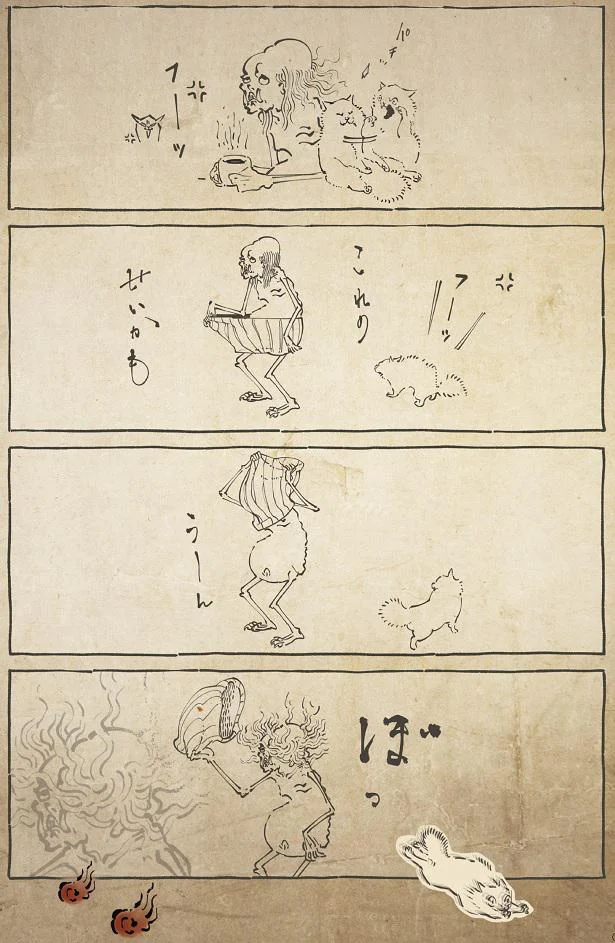 フーッ
フーッ
これの
せいかも
うーん
ぼっ